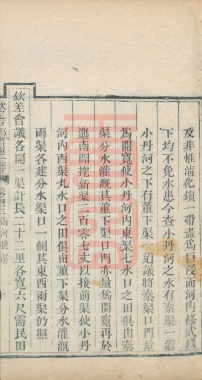 及非惟清化鎮一帶盡爲巨浸而河内修武以
下均不免水患今查小丹河之水有秦渠一道
小丹河之下有董下渠一道議將秦渠口門量
爲開寬使小丹河内東渠七水口之田俱由秦
渠分水灌溉其董下渠口門亦量爲開寬再於
迤南開挖新渠二百零七丈以接前渠使小丹
河内西渠九水口之田俱由董下渠分水灌溉
兩渠各建分水渠口一個其東西兩渠仍照
欽差會議各開一渠計長二十二里各寬六尺需民田